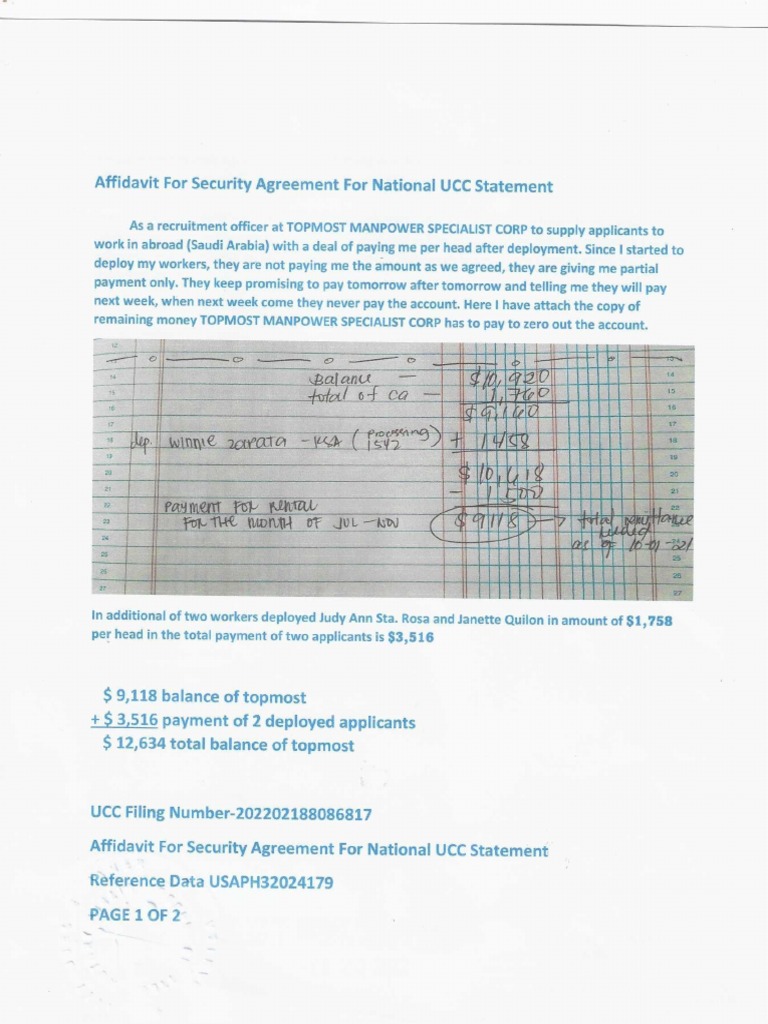 Affidavit For Security Agreement For National UCC Statement
As a recruitment officer at TOPMOST MANPOWER SPECIALIST CORP to supply applicants to
work in abroad (Saudi Arabia) with a deal of paying me per head after deployment. Since I started to
deploy my workers, they are not paying me the amount as we agreed, they are giving me partial
payment only. They keep promising to pay tomorrow after tomorrow and telling me they will pay
next week, when next week come they never pay the account. Here I have attach the copy of
remaining money TOPMOST MANPOWER SPECIALIST CORP has to pay to zero out the account.
Balance — $10,920
total of ca — 1,760
$9,160
dep. Winnie zapata - KSA (processing) + 1458
1542
$10,618
- 1,500
Payment for rental
for the month of JUL - NOV $9118 → total remittance
needed
as of 10-01-21
In additional of two workers deployed Judy Ann Sta. Rosa and Janette Quilon in amount of $1,758
per head in the total payment of two applicants is $3,516
$ 9,118 balance of topmost
+ $ 3,516 payment of 2 deployed applicants
$ 12,634 total balance of topmost
UCC Filing Number-202202188086817
Affidavit For Security Agreement For National UCC Statement
Reference Data USAPH32024179
PAGE 1 OF 2